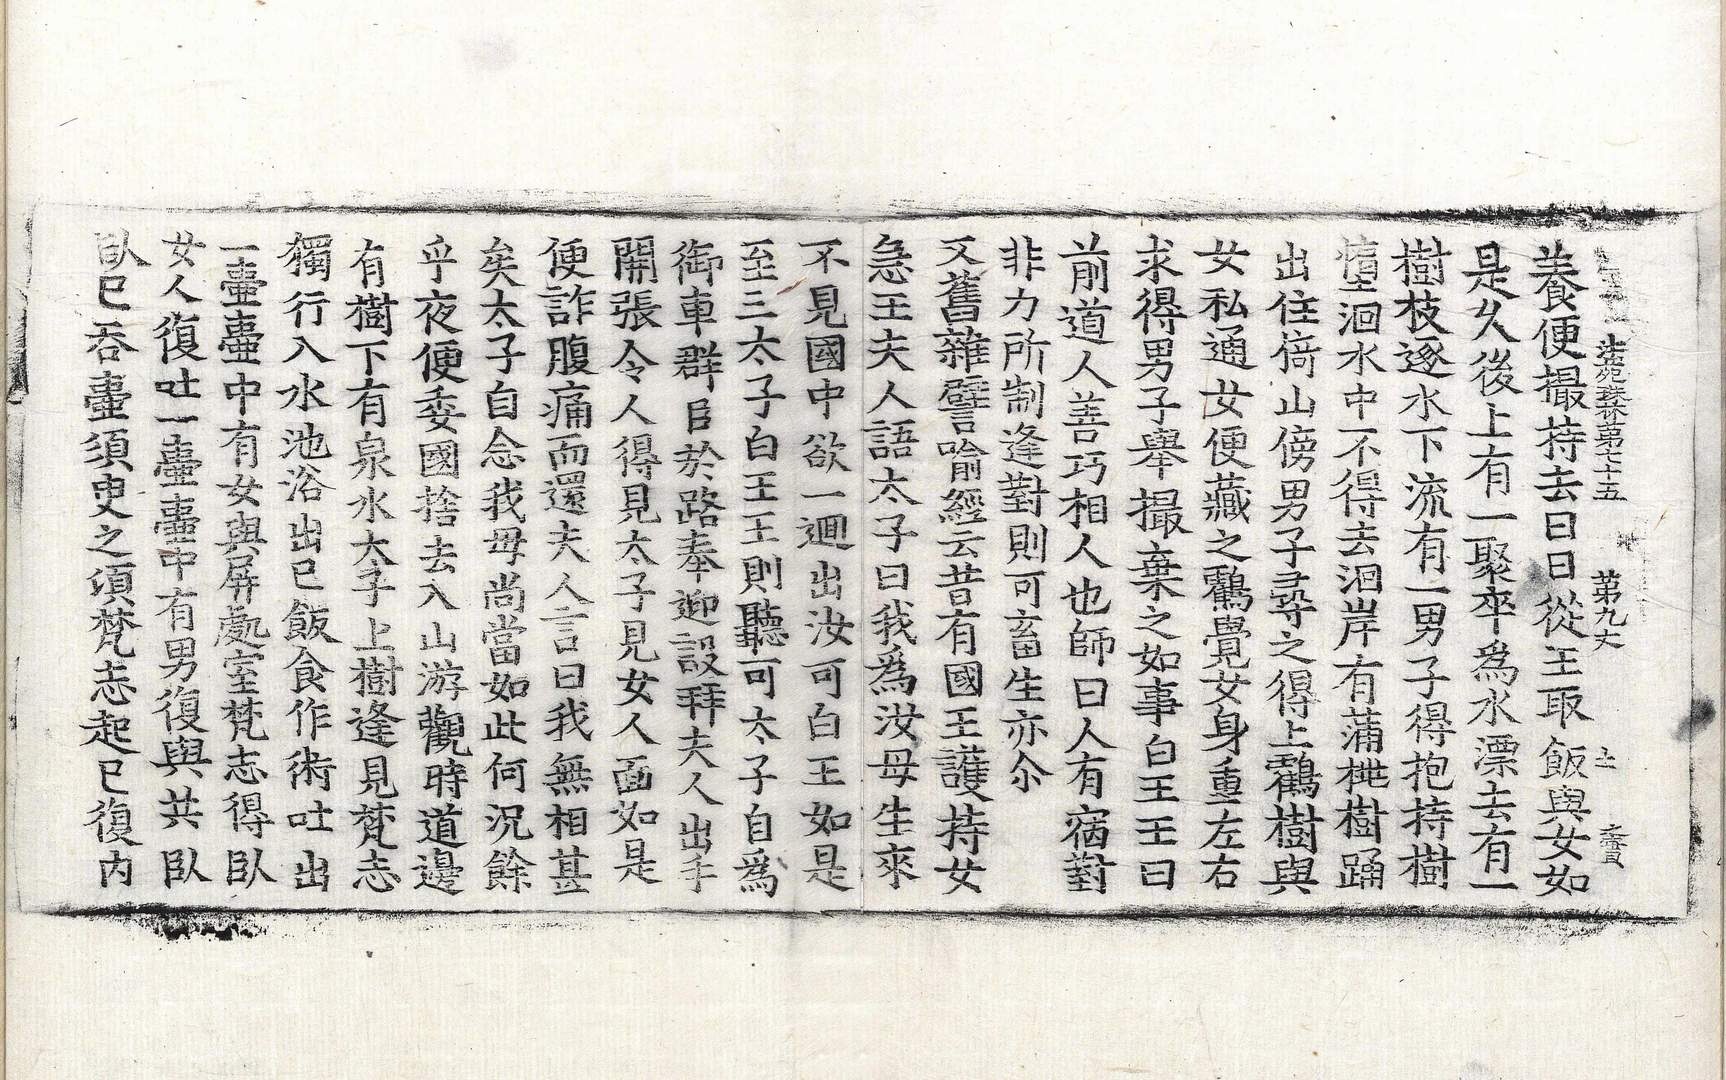 法苑珠林第七十五 第九丈
養便撮持去日日從王取飯與女如
是久後上有一聚卒爲水漂去有一
樹枝逐水下流有一男子得抱持樹
墮洄水中不得去洄岸有蒲桃樹踊
出住倚山傍男子尋之得上鸖樹與
女私通女便藏之鸖覺女身重左右
求得男子舉撮棄之如事白王王曰
前道人善巧相人也師曰人有宿對
非力所制逢對則可畜生亦尒
又舊雜譬喻經云昔有國王護持女
急王夫人語太子曰我爲汝母生來
不見國中欲一迴出汝可白王如是
至三太子白王王則聽可太子自爲
御車群臣於路奉迎設拜夫人出手
開張令人得見太子見女人面如是
便詐腹痛而還夫人言曰我無相甚
矣太子自念我母尚當如此何況餘
乎夜便委國捨去入山游觀時道邊
有樹下有泉水太子上樹逢見梵志
獨行入水池浴出已飯食作術吐出
一壷壷中有女與屏處室梵志得臥
女人復吐一壷壷中有男復與共臥
臥已吞壷須臾之頃梵志起已復内